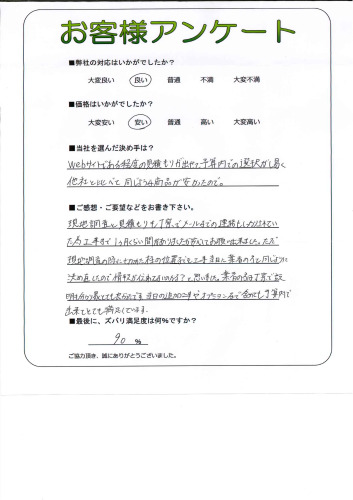 お客様アンケート
■弊社の対応はいかがでしたか?
大変良い 良い 普通 不満 大変不満
■価格はいかがでしたか?
大変安い 安い 普通 高い 大変高い
■当社を選んだ決め手は?
Webサイトである程度の見積もりが出せて、予算内での選択が易く
他社と比べて同じような商品が安かったので。
■ご感想・ご要望などをお書き下さい。
現地調査と見積もりも丁寧でメールでの連絡もしっかりしてい
た為工事まで1ヶ月くらい間がありましたが安心してお願い出来ました。ただ
現地調査の時に決めた柱の位置を工事当日に業者の方と同じように
決め直したので情報が伝わってないのかな?と思いました。業者の方は丁寧で説
明も分かりやすくとても良かったです。当日の追加工事やオプションなどで合計も予算内で
出来てとても満足しています。
■最後に、ズバリ満足度は何%ですか?
90 %
ご協力頂き、誠にありがとうございました。